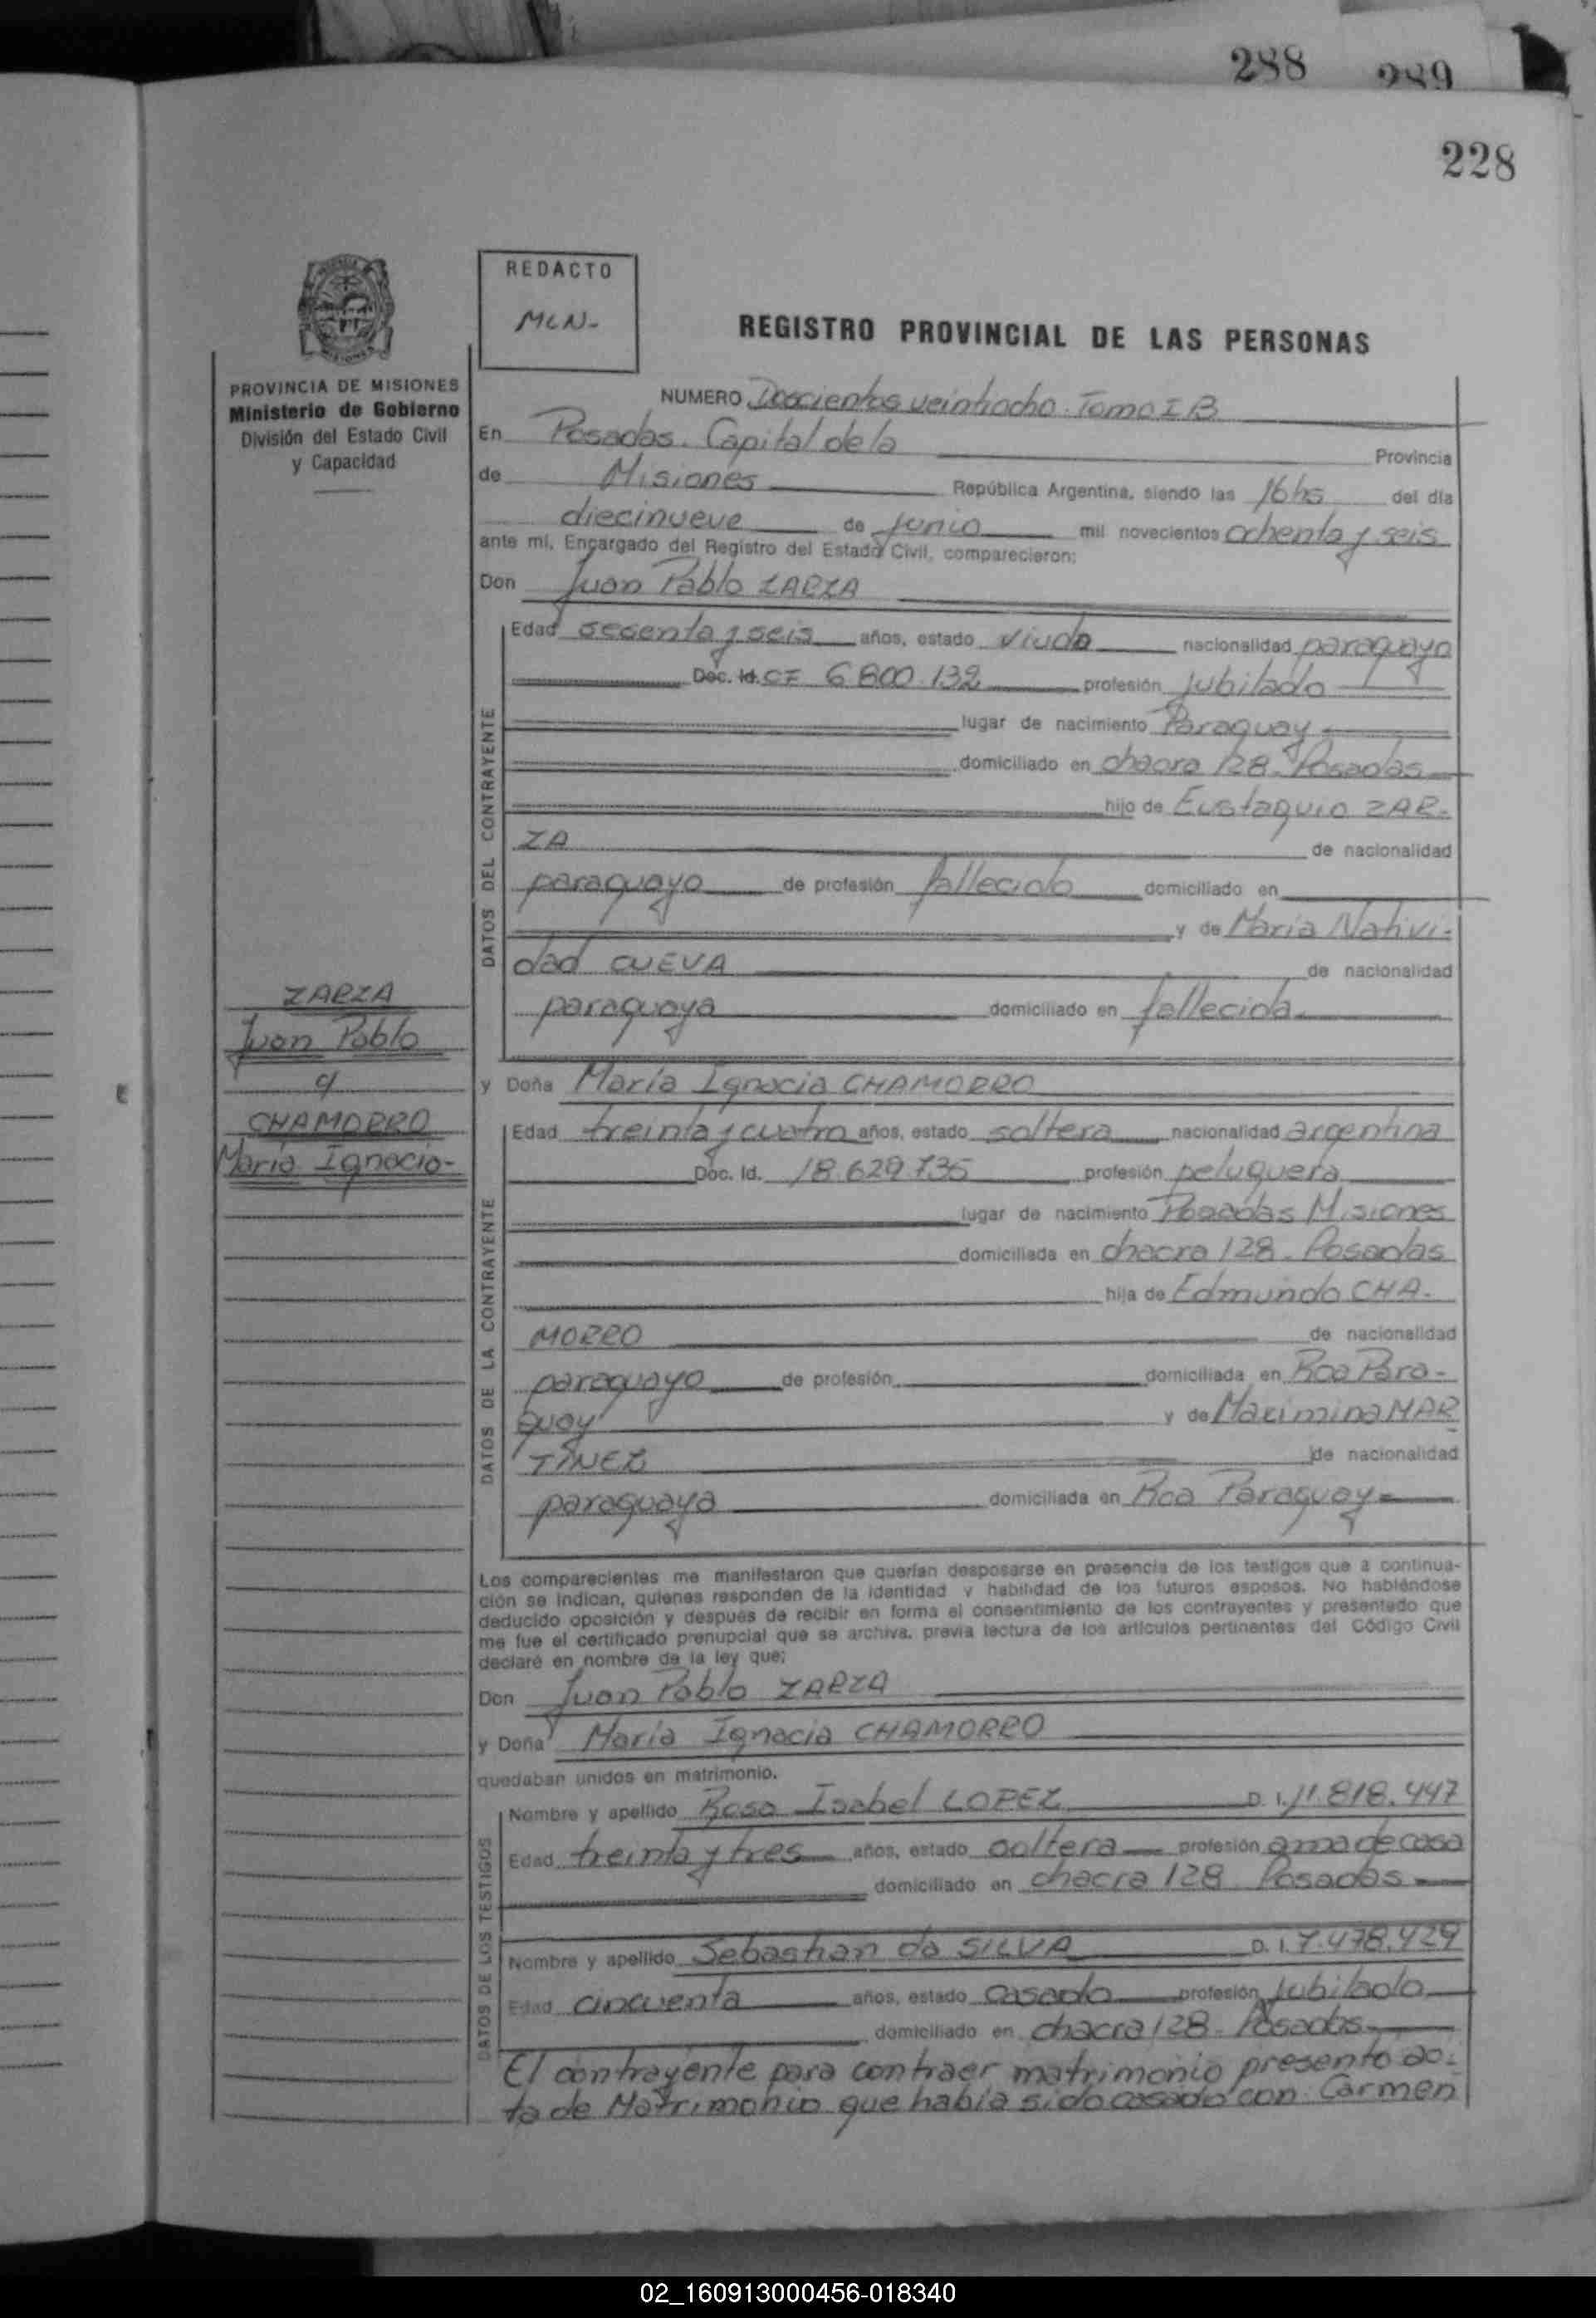 288 289
228
REDACTO
MLN-
REGISTRO PROVINCIAL DE LAS PERSONAS
PROVINCIA DE MISIONES
Ministerio de Gobierno
División del Estado Civil
y Capacidad
NUMERO Doscientos veintiocho. Tomo I B
En Posadas. Capital de la Provincia
de Misiones República Argentina, siendo las 16hs del día
diecinueve de junio mil novecientos ochenta y seis
ante mí, Encargado del Registro del Estado Civil, comparecieron:
Don Juan Pablo ZARZA
DATOS DEL CONTRAYENTE
Edad sesenta y seis años, estado viudo nacionalidad paraguayo
Doc. Id. CF 6.800.132 profesión jubilado
lugar de nacimiento Paraguay
domiciliado en chacra 128. Posadas
hijo de Eustaquio ZAR-
ZA de nacionalidad
paraguayo de profesión fallecido domiciliado en
y de María Nativi-
dad CUEVA de nacionalidad
paraguaya domiciliado en fallecida
ZARZA
Juan Pablo
c/
CHAMORRO
María Ignacia-
y Doña María Ignacia CHAMORRO
DATOS DE LA CONTRAYENTE
Edad treinta y cuatro años, estado soltera nacionalidad argentina
Doc. Id. 18.629.735 profesión peluquera
lugar de nacimiento Posadas Misiones
domiciliada en chacra 128. Posadas
hija de Edmundo CHA-
MORRO de nacionalidad
paraguayo de profesión domiciliada en Rca Para-
guay y de Maximina MAR
TINEZ de nacionalidad
paraguaya domiciliada en Rca Paraguay
Los comparecientes me manifestaron que querían desposarse en presencia de los testigos que a continua-
ción se indican, quienes responden de la identidad y habilidad de los futuros esposos. No habiéndose
deducido oposición y después de recibir en forma el consentimiento de los contrayentes y presentado que
me fue el certificado prenupcial que se archiva, previa lectura de los artículos pertinentes del Código Civil
declaré en nombre de la ley que:
Don Juan Pablo ZARZA
y Doña María Ignacia CHAMORRO
quedaban unidos en matrimonio.
DATOS DE LOS TESTIGOS
Nombre y apellido Rosa Isabel LOPEZ D. I. 11.818.447
Edad treinta y tres años, estado soltera profesión ama de casa
domiciliado en chacra 128 Posadas
Nombre y apellido Sebastian da SILVA D. I. 7.478.429
Edad cincuenta años, estado casado profesión jubilado
domiciliado en chacra 128. Posadas
El contrayente para contraer matrimonio presento ac-
ta de Matrimonio que habia sido casado con Carmen
02_160913000456-018340